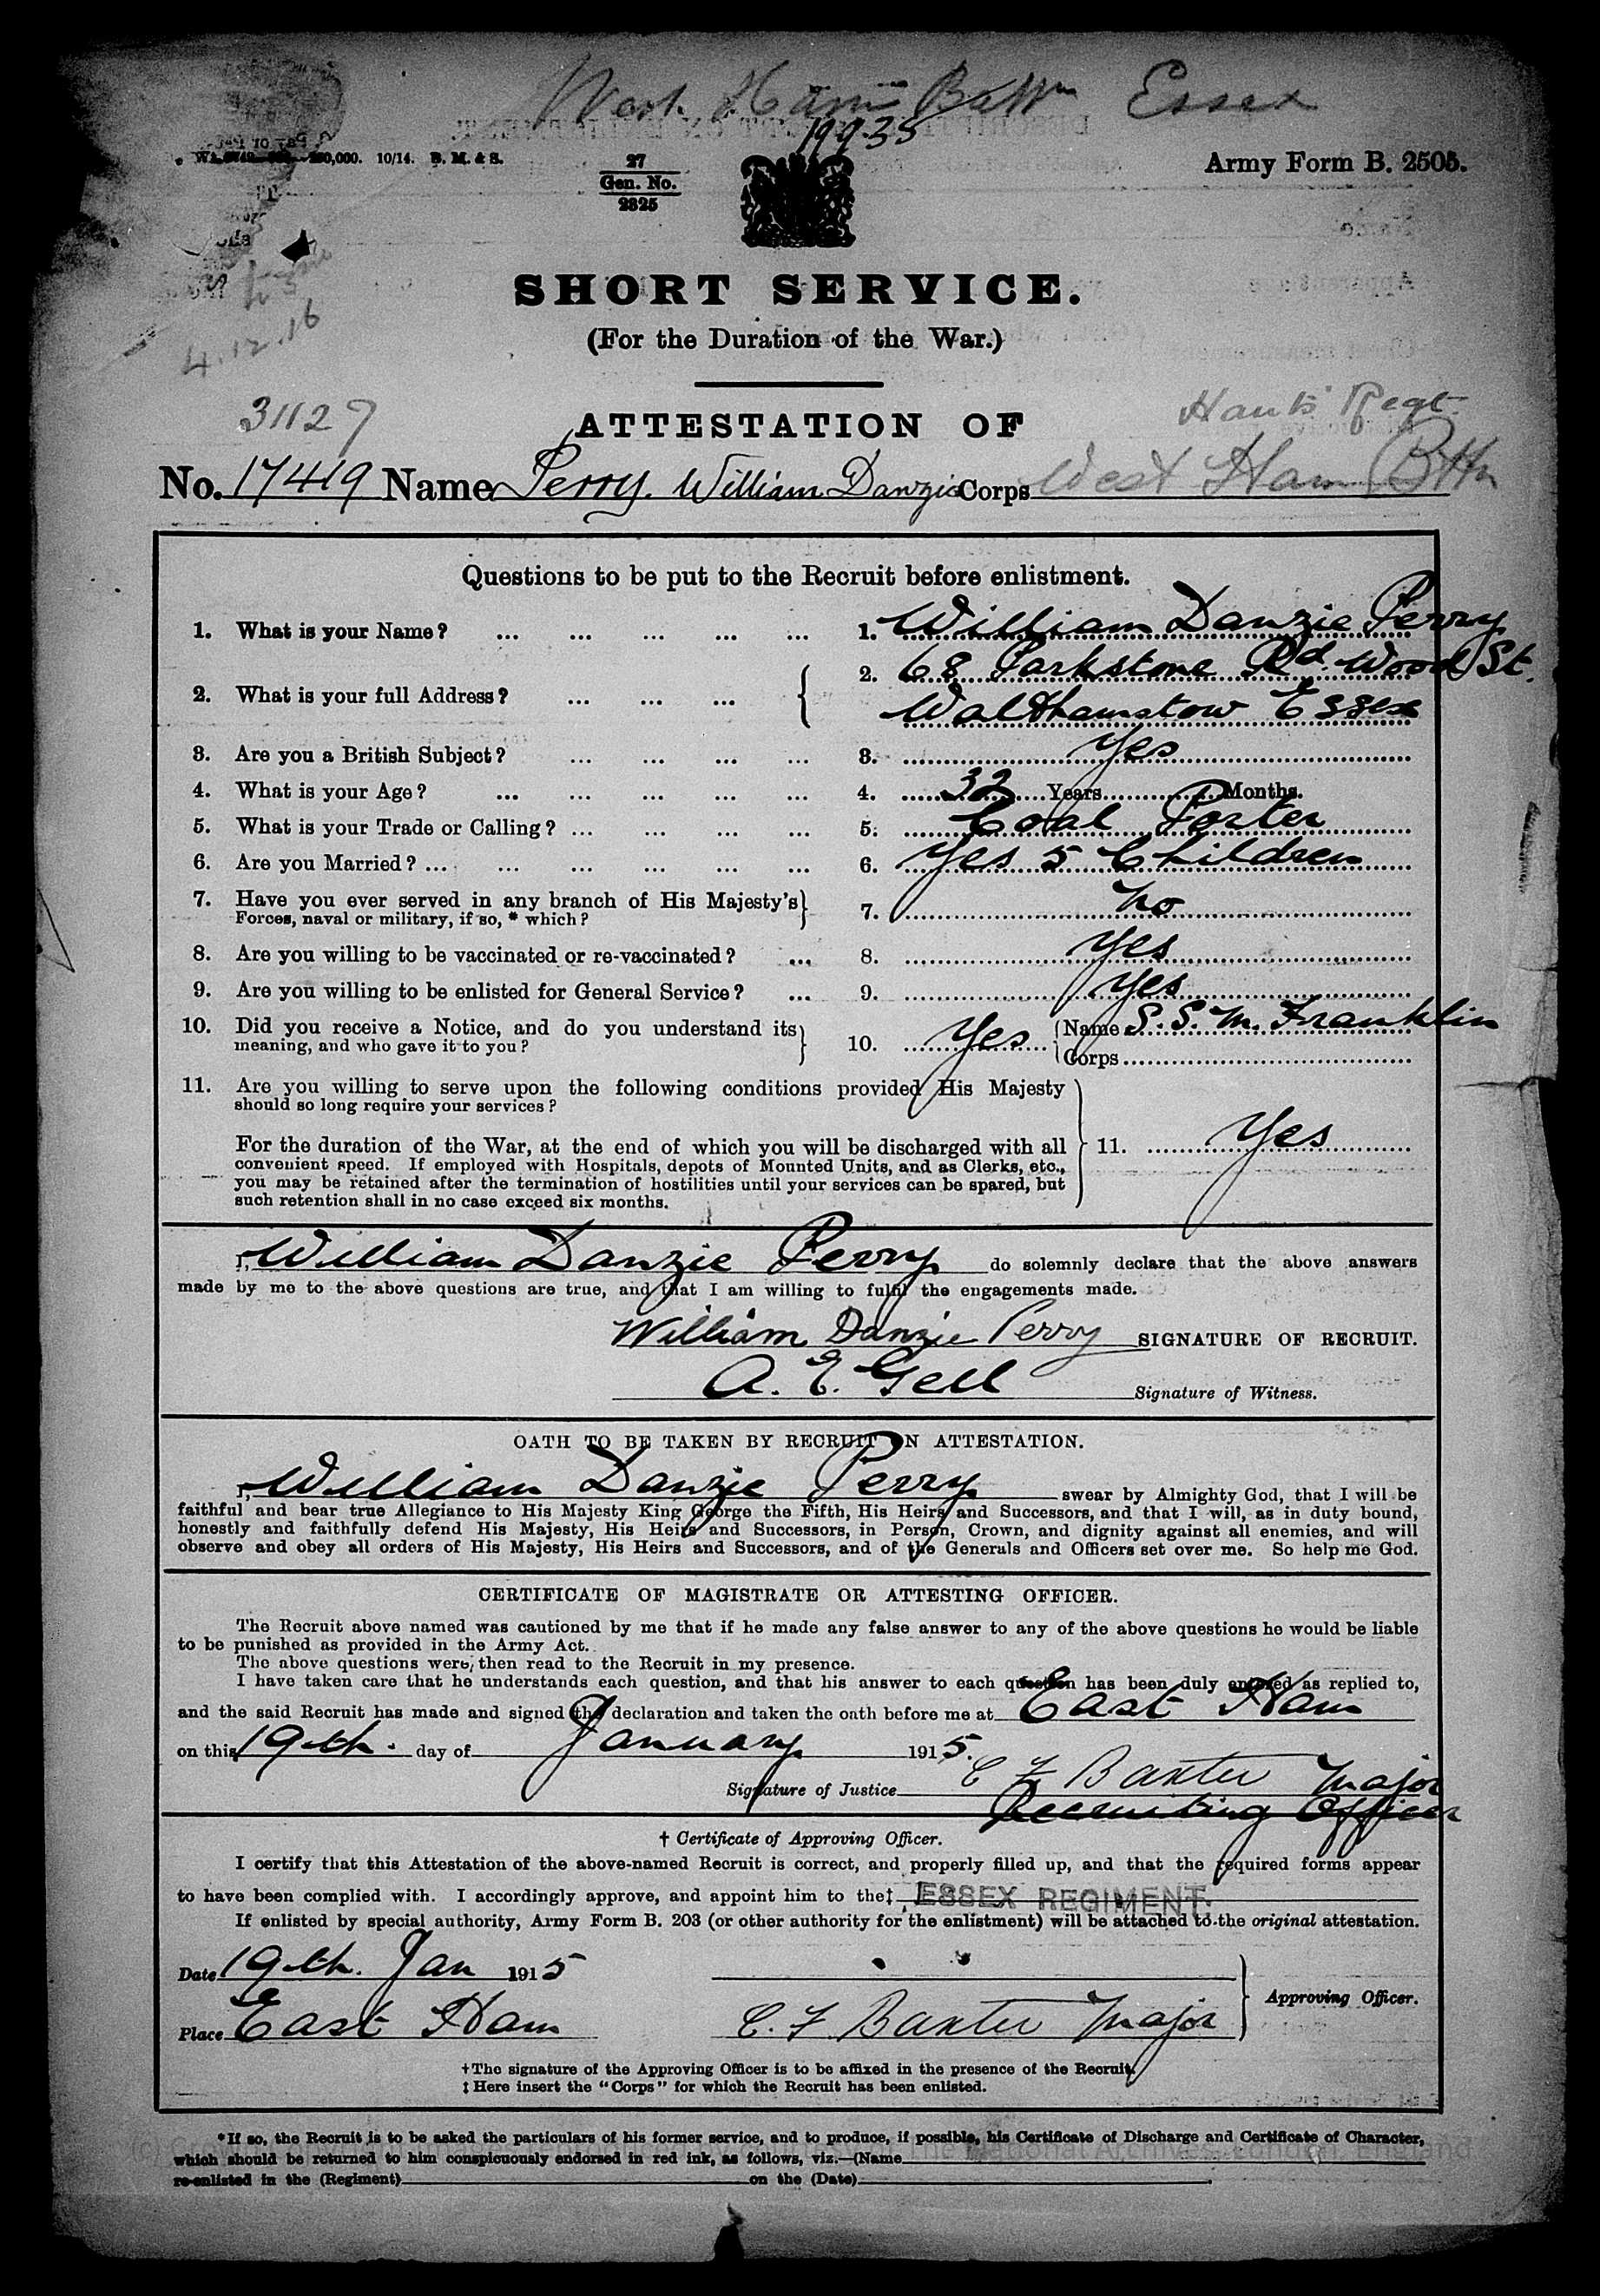 West Ham Battn Essex
19935
10/14. B. M. & S.
27
Gen. No.
2825
Army Form B. 2505.
4.12.16
SHORT SERVICE.
(For the Duration of the War.)
31127
ATTESTATION OF
Hants Regt.
No. 17419 Name Perry. William Danzie Corps West Ham Bttn
Questions to be put to the Recruit before enlistment.
1. What is your Name? ... ... ... ... ... 1. William Danzie Perry
2. What is your full Address? ... ... ... 2. 68 Parkstone Rd. Wood St.
Walthamstow Essex
3. Are you a British Subject? ... ... ... ... 3. Yes
4. What is your Age? ... ... ... ... ... 4. 32 Years Months.
5. What is your Trade or Calling? ... ... ... ... 5. Coal Porter
6. Are you Married? ... ... ... ... ... ... 6. Yes 5 Children
7. Have you ever served in any branch of His Majesty's
Forces, naval or military, if so, * which? 7. No
8. Are you willing to be vaccinated or re-vaccinated? ... 8. Yes
9. Are you willing to be enlisted for General Service? ... 9. Yes
10. Did you receive a Notice, and do you understand its Name S. S. M. Franklin
meaning, and who gave it to you? 10. Yes Corps
11. Are you willing to serve upon the following conditions provided His Majesty
should so long require your services?
For the duration of the War, at the end of which you will be discharged with all 11. Yes
convenient speed. If employed with Hospitals, depots of Mounted Units, and as Clerks, etc.,
you may be retained after the termination of hostilities until your services can be spared, but
such retention shall in no case exceed six months.
I, William Danzie Perry do solemnly declare that the above answers
made by me to the above questions are true, and that I am willing to fulfil the engagements made.
William Danzie Perry SIGNATURE OF RECRUIT.
A. E. Gell Signature of Witness.
OATH TO BE TAKEN BY RECRUIT ON ATTESTATION.
I, William Danzie Perry swear by Almighty God, that I will be
faithful and bear true Allegiance to His Majesty King George the Fifth, His Heirs and Successors, and that I will, as in duty bound,
honestly and faithfully defend His Majesty, His Heirs and Successors, in Person, Crown, and dignity against all enemies, and will
observe and obey all orders of His Majesty, His Heirs and Successors, and of the Generals and Officers set over me. So help me God.
CERTIFICATE OF MAGISTRATE OR ATTESTING OFFICER.
The Recruit above named was cautioned by me that if he made any false answer to any of the above questions he would be liable
to be punished as provided in the Army Act.
The above questions were then read to the Recruit in my presence.
I have taken care that he understands each question, and that his answer to each question has been duly entered as replied to,
and the said Recruit has made and signed the declaration and taken the oath before me at East Ham
on this 19th. day of January 1915.
Signature of Justice C F Baxter Major
Recruiting Officer
† Certificate of Approving Officer.
I certify that this Attestation of the above-named Recruit is correct, and properly filled up, and that the required forms appear
to have been complied with. I accordingly approve, and appoint him to the‡ ESSEX REGIMENT.
If enlisted by special authority, Army Form B. 203 (or other authority for the enlistment) will be attached to the original attestation.
Date 19th. Jan 1915
Approving Officer.
Place East Ham C. F Baxter Major
† The signature of the Approving Officer is to be affixed in the presence of the Recruit.
‡ Here insert the "Corps" for which the Recruit has been enlisted.
*If so, the Recruit is to be asked the particulars of his former service, and to produce, if possible, his Certificate of Discharge and Certificate of Character,
which should be returned to him conspicuously endorsed in red ink, as follows, viz.—(Name
re-enlisted in the (Regiment) on the (Date)